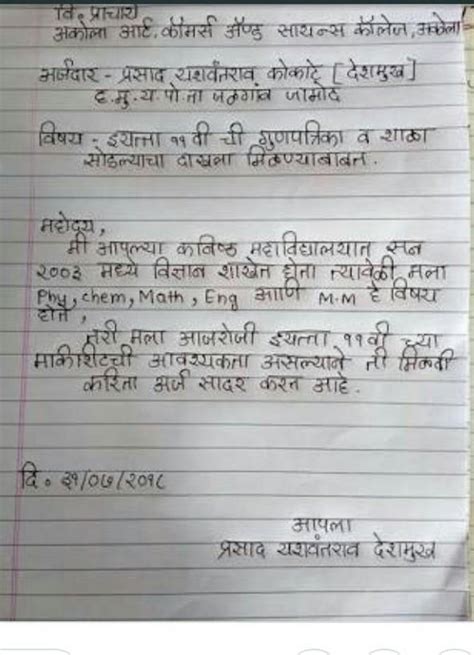 वि. प्राचार्य
अकोला आर्ट, कॉमर्स ॲण्ड सायन्स कॉलेज, अकोला
अर्जदार - प्रसाद यशवंतराव कोकाटे [देशमुख]
ह.मु.य.पो.ता जळगांव जामोद
विषय - इयत्ता ११ वी ची गुणपत्रिका व शाळा
सोडल्याचा दाखला मिळण्याबाबत.
महोदय,
मी आपल्या कनिष्ठ महाविद्यालयात सन
२००३ मध्ये विज्ञान शाखेत होतो त्यावेळी मला
Phy, chem, Math, Eng आणि M.M हे विषय
होते,
तरी मला आजरोजी इयत्ता ११वी च्या
मार्कशिटची आवश्यकता असल्याने ती मिळावी
करिता अर्ज सादर करत आहे.
दि. ३१/०७/२०१८
आपला
प्रसाद यशवंतराव देशमुख